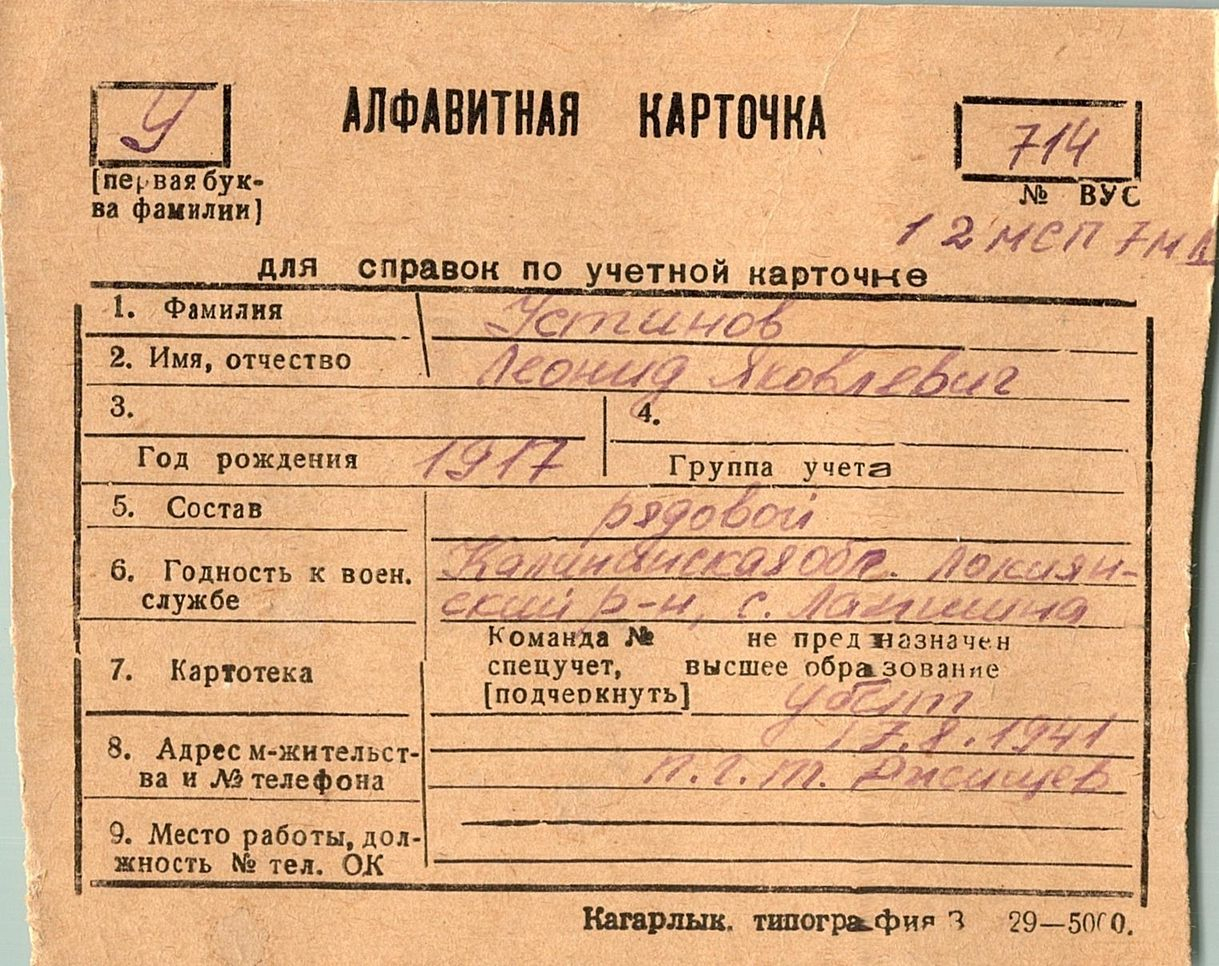 У
АЛФАВИТНАЯ КАРТОЧКА
714
[первая бук-
ва фамилии]
№ ВУС
12 МСП 7 М
для справок по учетной карточке
1. Фамилия Устинов
2. Имя, отчество Леонид Яковлевич
3. 4.
Год рождения 1917 Группа учета
5. Состав рядовой
6. Годность к воен. Калининская обл. Локнян-
службе ский р-н, с.
Команда № не предназначен
7. Картотека спецучет, высшее образование
[подчеркнуть] убит
17.8.1941
8. Адрес м-жительст- п.г.т. Ржищев
ва и № телефона
9. Место работы, дол-
жность № тел. ОК
Кагарлык. типография З 29—5000.